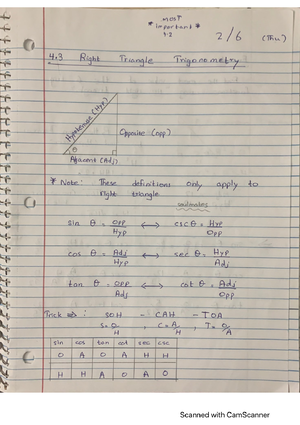 most
* important *
1-2
2/6 (Thu)
4.3 Right Triangle Trigonometry
Hypotenuse (Hyp)
Opposite (opp)
θ
Adjacent (Adj)
* Note: These definitions only apply to
right triangle
soulmates
sin θ = opp/Hyp ⟷ csc θ = Hyp/Opp
cos θ = Adj/Hyp ⟷ sec θ = Hyp/Adj
tan θ = opp/Adj ⟷ cot θ = Adj/Opp
Trick : SOH - CAH - TOA
S = O/H , C = A/H , T = O/A
sin cos tan cot sec csc
O A O A H H
H H A O A O
Scanned with CamScanner